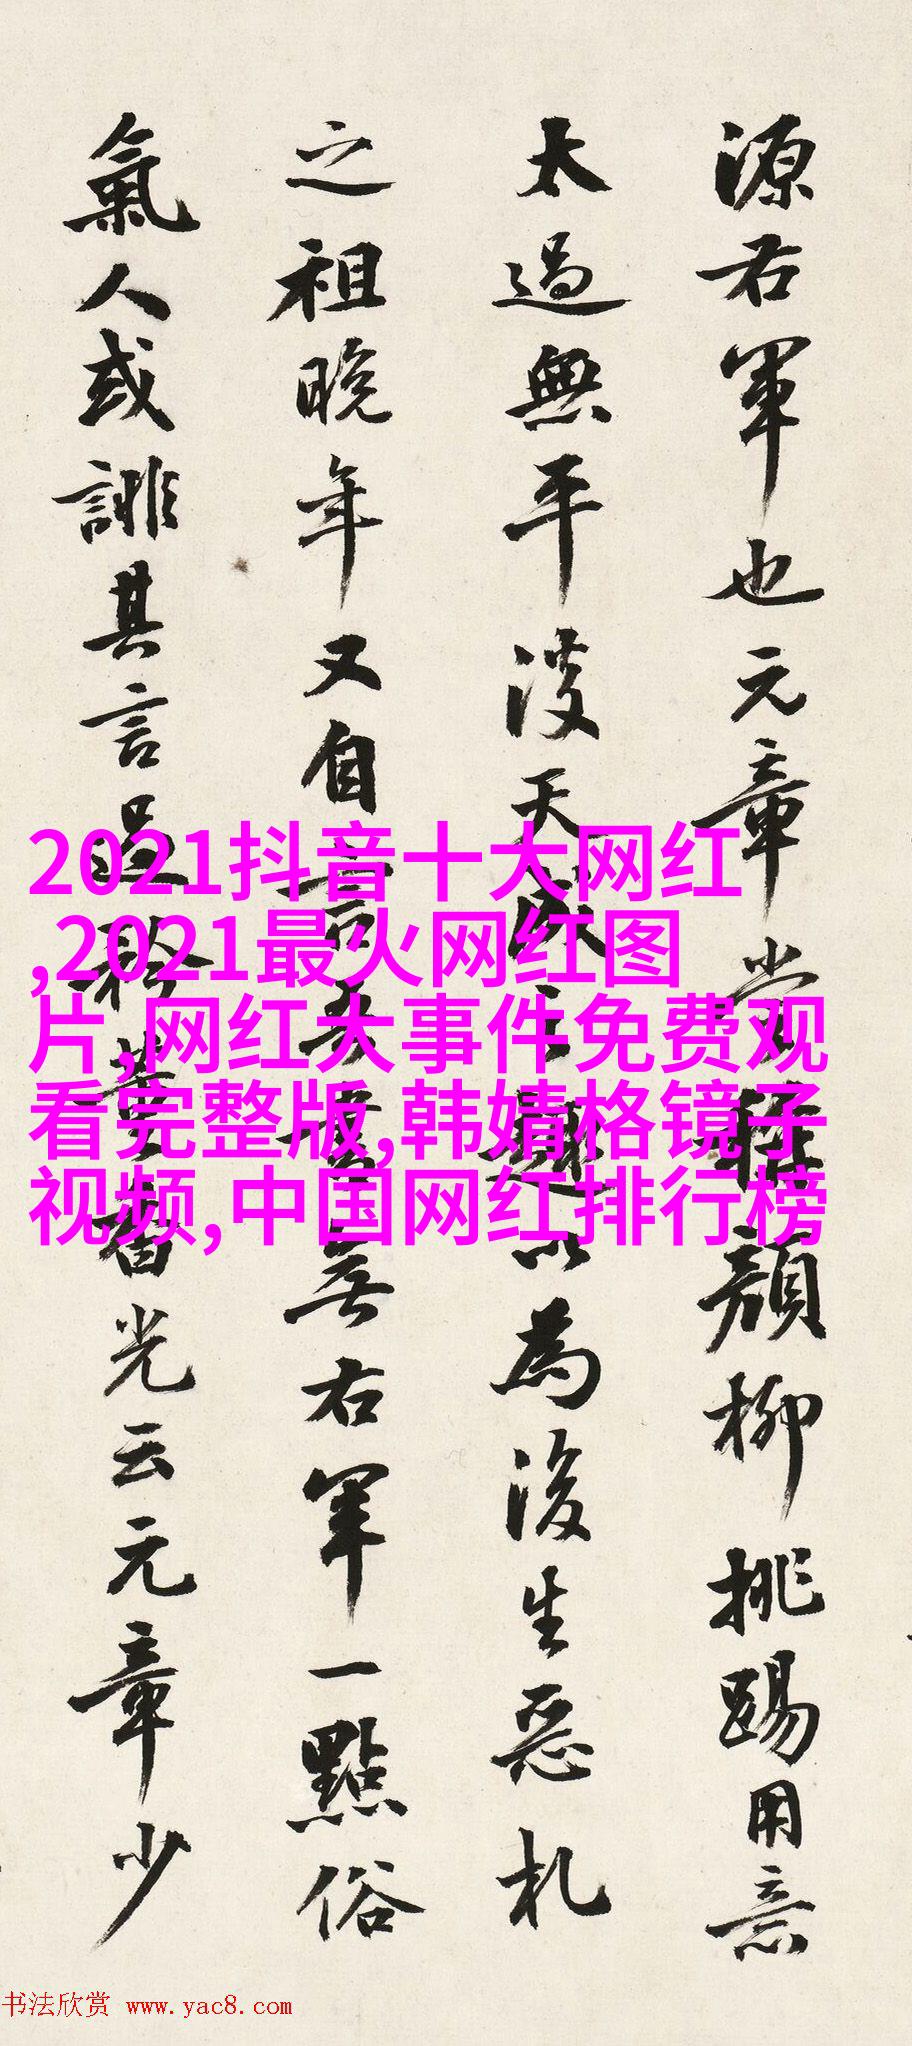 源右軍也元章嘗
顔柳挑踢用意
太過無平淡天成之趣以為後生惡札
之祖晚年又自言吾書無右軍一點俗
氣人或誹其言過矜黄
光云元章少
2021抖音十大网红
,2021最火网红图
片,网红大事件免费观
看完整版,韩婧格镜子
视频,中国网红排行榜
书法欣赏 www.yac8.com